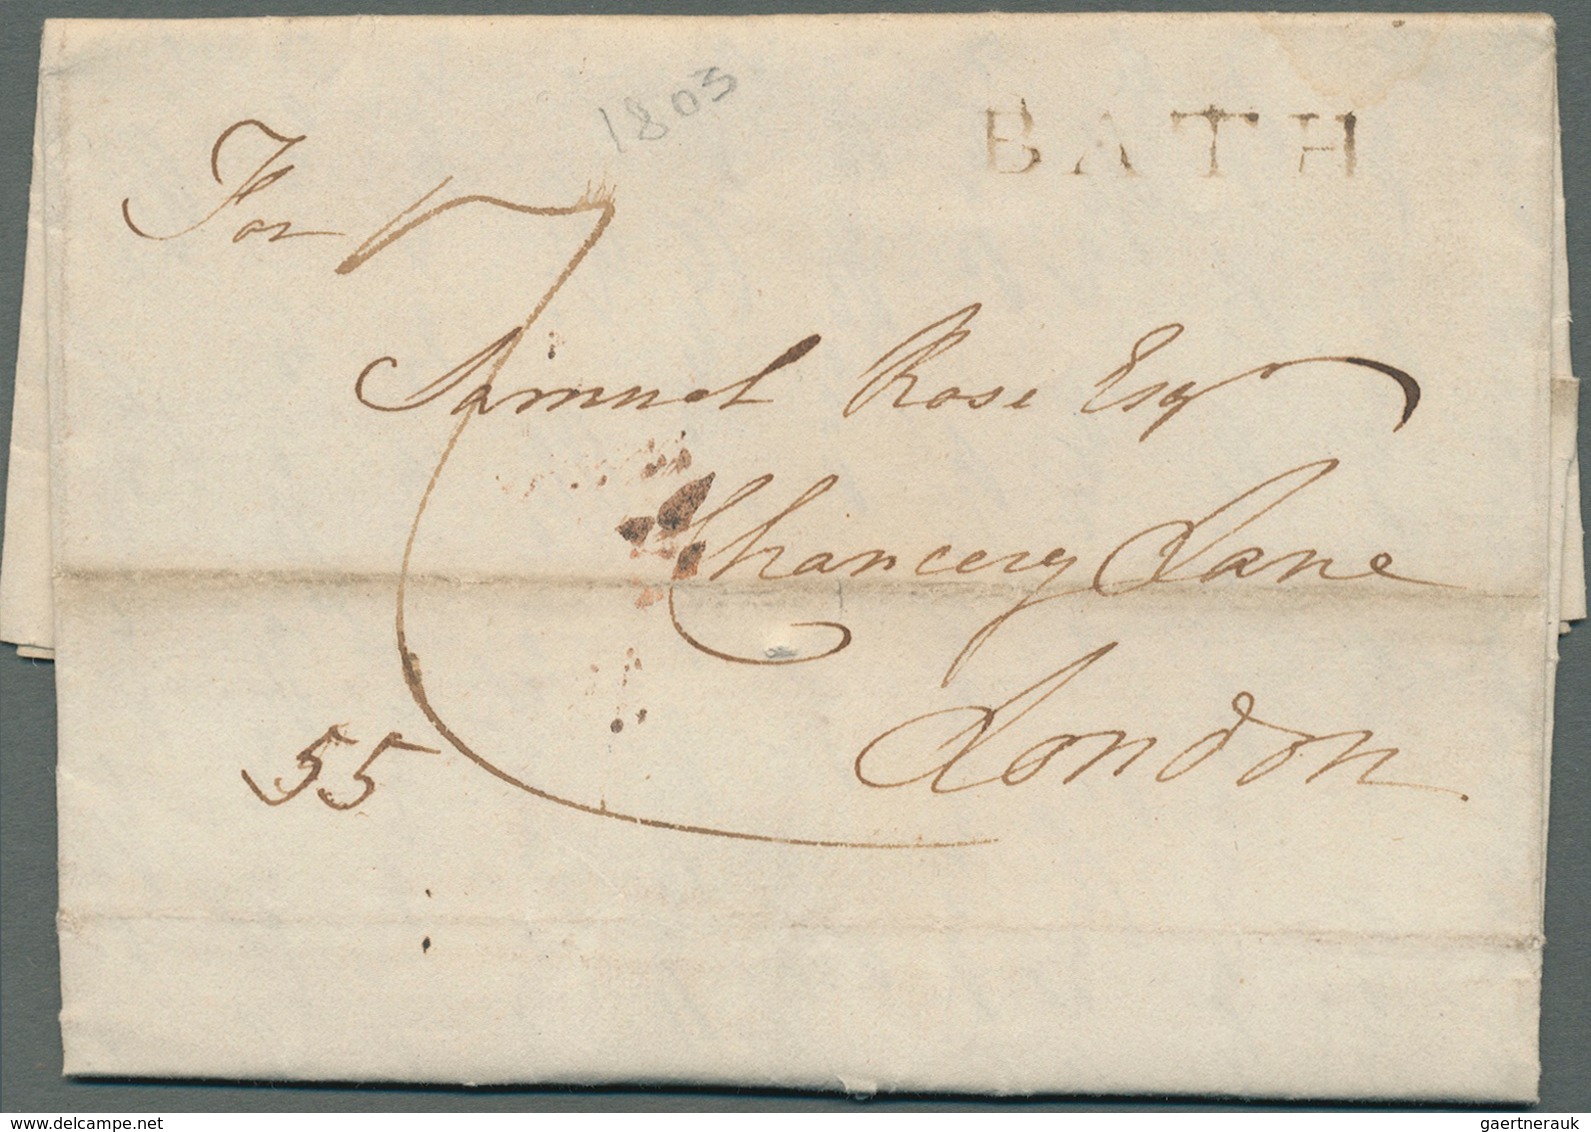 1803
BATH
For
7
Samuel Rose Esqr
Chancery Lane
London.
55
www.delcampe.net
gaertnerauk